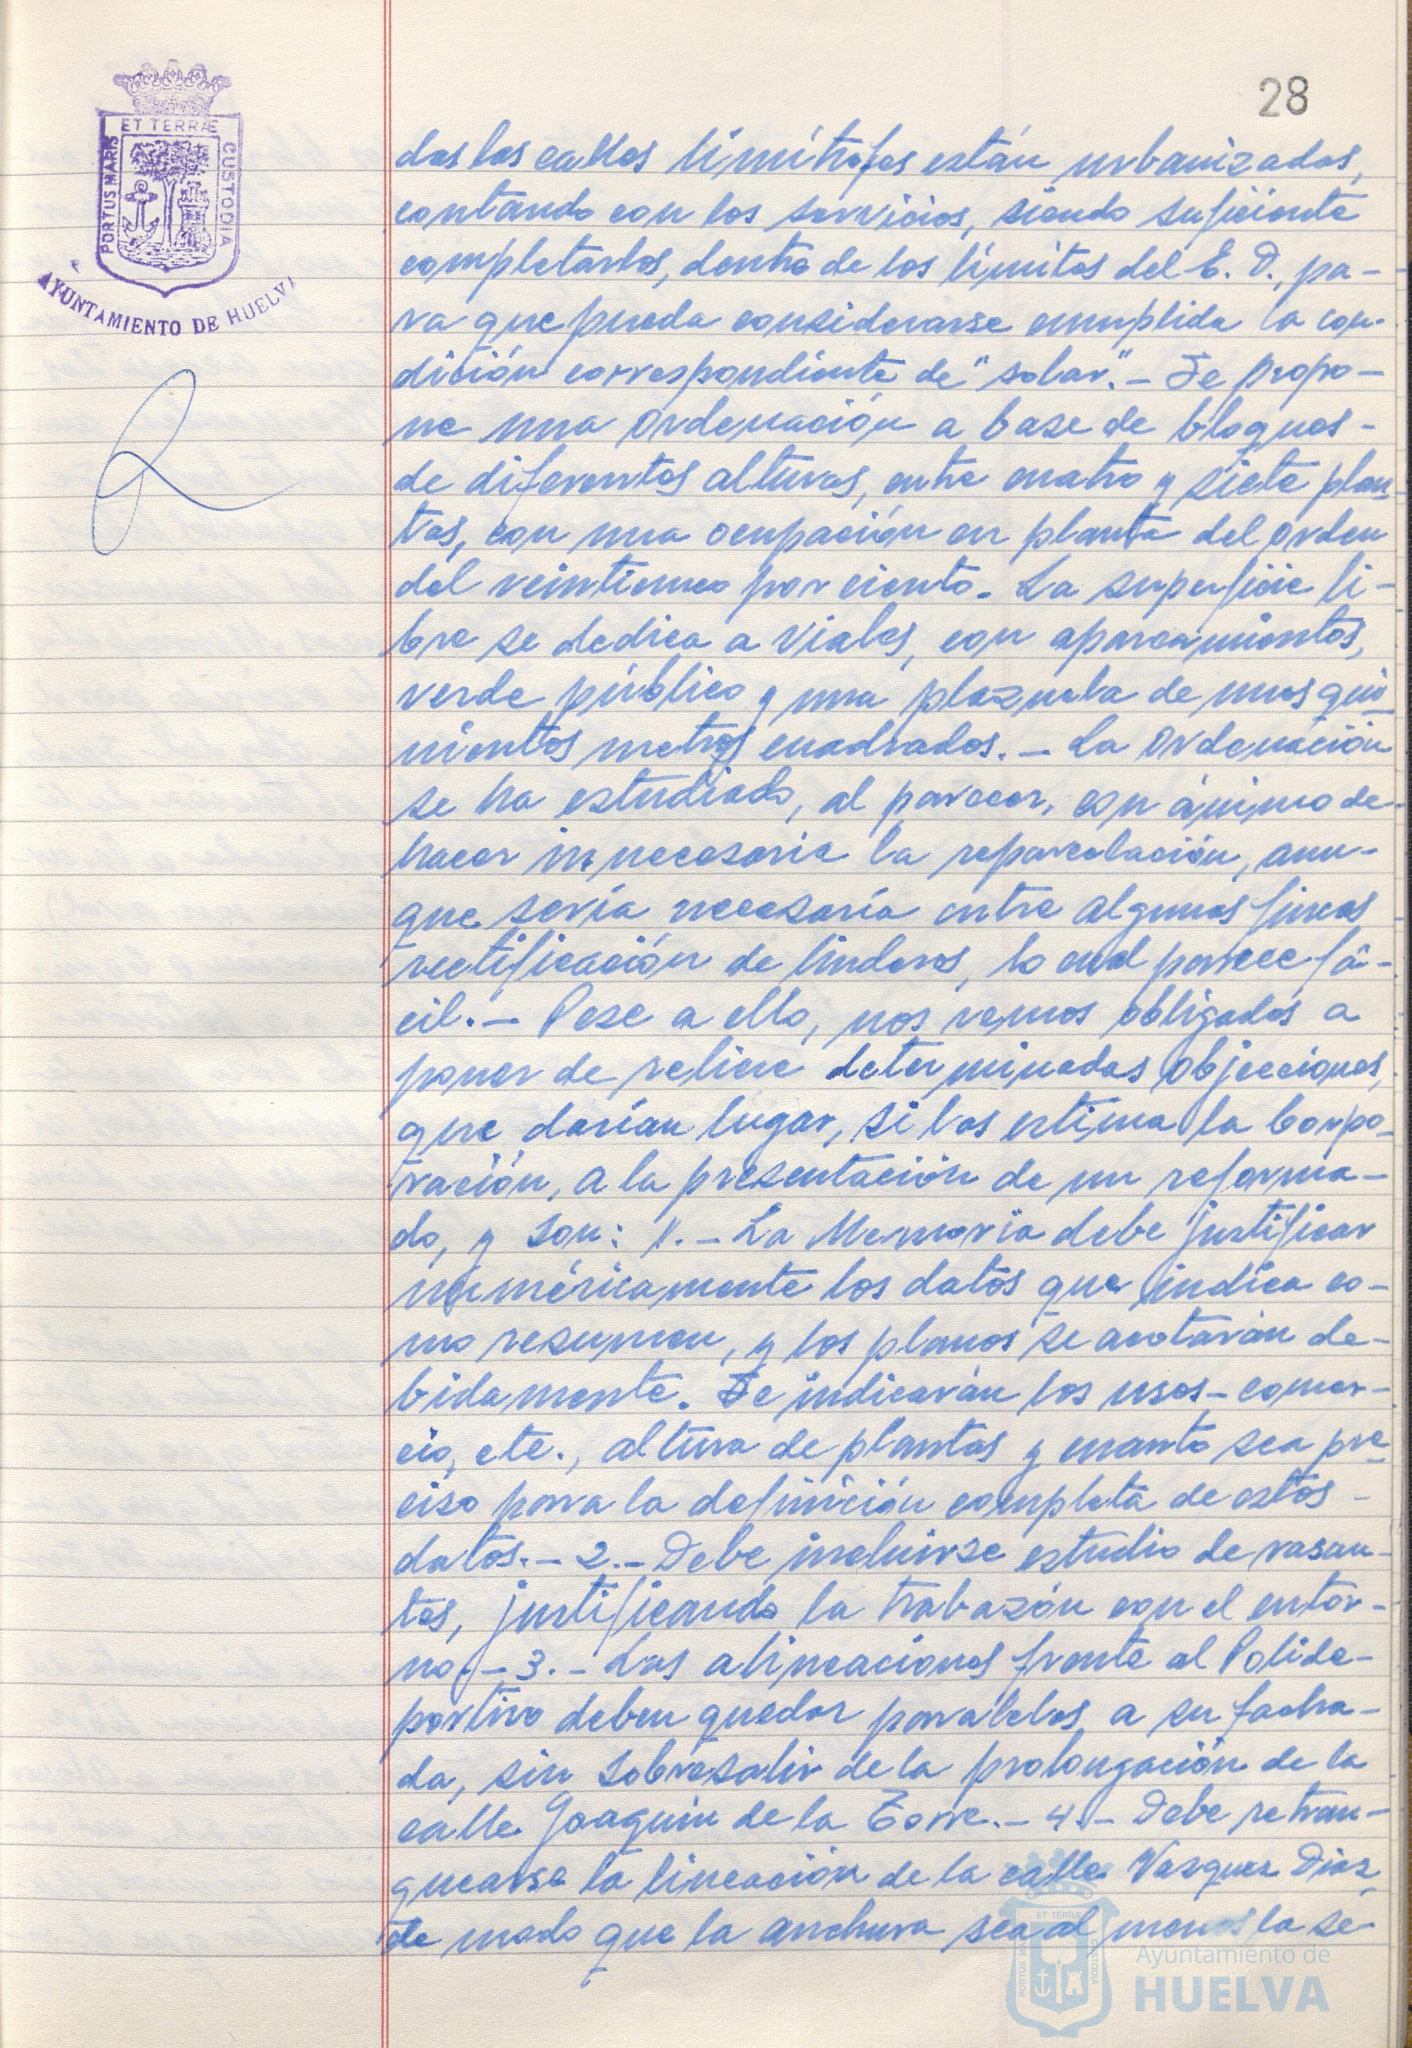 28
ET TERRÆ
PORTUS MARIS
CUSTODIA
AYUNTAMIENTO DE HUELVA
das las calles limítrofes están urbanizadas,
contando con los servicios, siendo suficiente
completarlos, dentro de los límites del E. D., pa-
ra que pueda considerarse cumplida la con-
dición correspondiente de "solar".- Se propo-
ne una ordenación a base de bloques-
de diferentes alturas, entre cuatro y siete plan-
tas, con una ocupación en planta del orden
del veinticinco por ciento.- La superficie li-
bre se dedica a viales, con aparcamientos,
verde público y una plazuela de unos qui-
nientos metros cuadrados.- La Ordenación
se ha estudiado, al parecer, con ánimo de-
hacer innecesaria la reparcelación, aun-
que sería necesaria entre algunas fincas
rectificación de linderos, lo cual parece fá-
cil.- Pese a ello, nos vemos obligados a
poner de relieve determinadas objecciones,
que darían lugar, si las estima la Corpo-
ración, a la presentación de un reforma-
do, y son: 1.- La Memoria debe justificar
numéricamente los datos que indica co-
mo resumen, y los planos se acotarán de-
bidamente. Se indicarán los usos- comer-
cio, etc., altura de plantas y cuanto sea pre-
ciso para la definición completa de estos-
datos.- 2.- Debe incluirse estudio de rasan-
tes, justificando la trabazón con el entor-
no.- 3.- Las alineaciones frente al Polide-
portivo deben quedar paralelas a su facha-
da, sin sobresalir de la prolongación de la
calle Joaquín de la Torre.- 4.- Debe retran-
quearse la lineación de la calle Vazquez Diaz,
de modo que la anchura sea al menos la se-
Ayuntamiento de
HUELVA